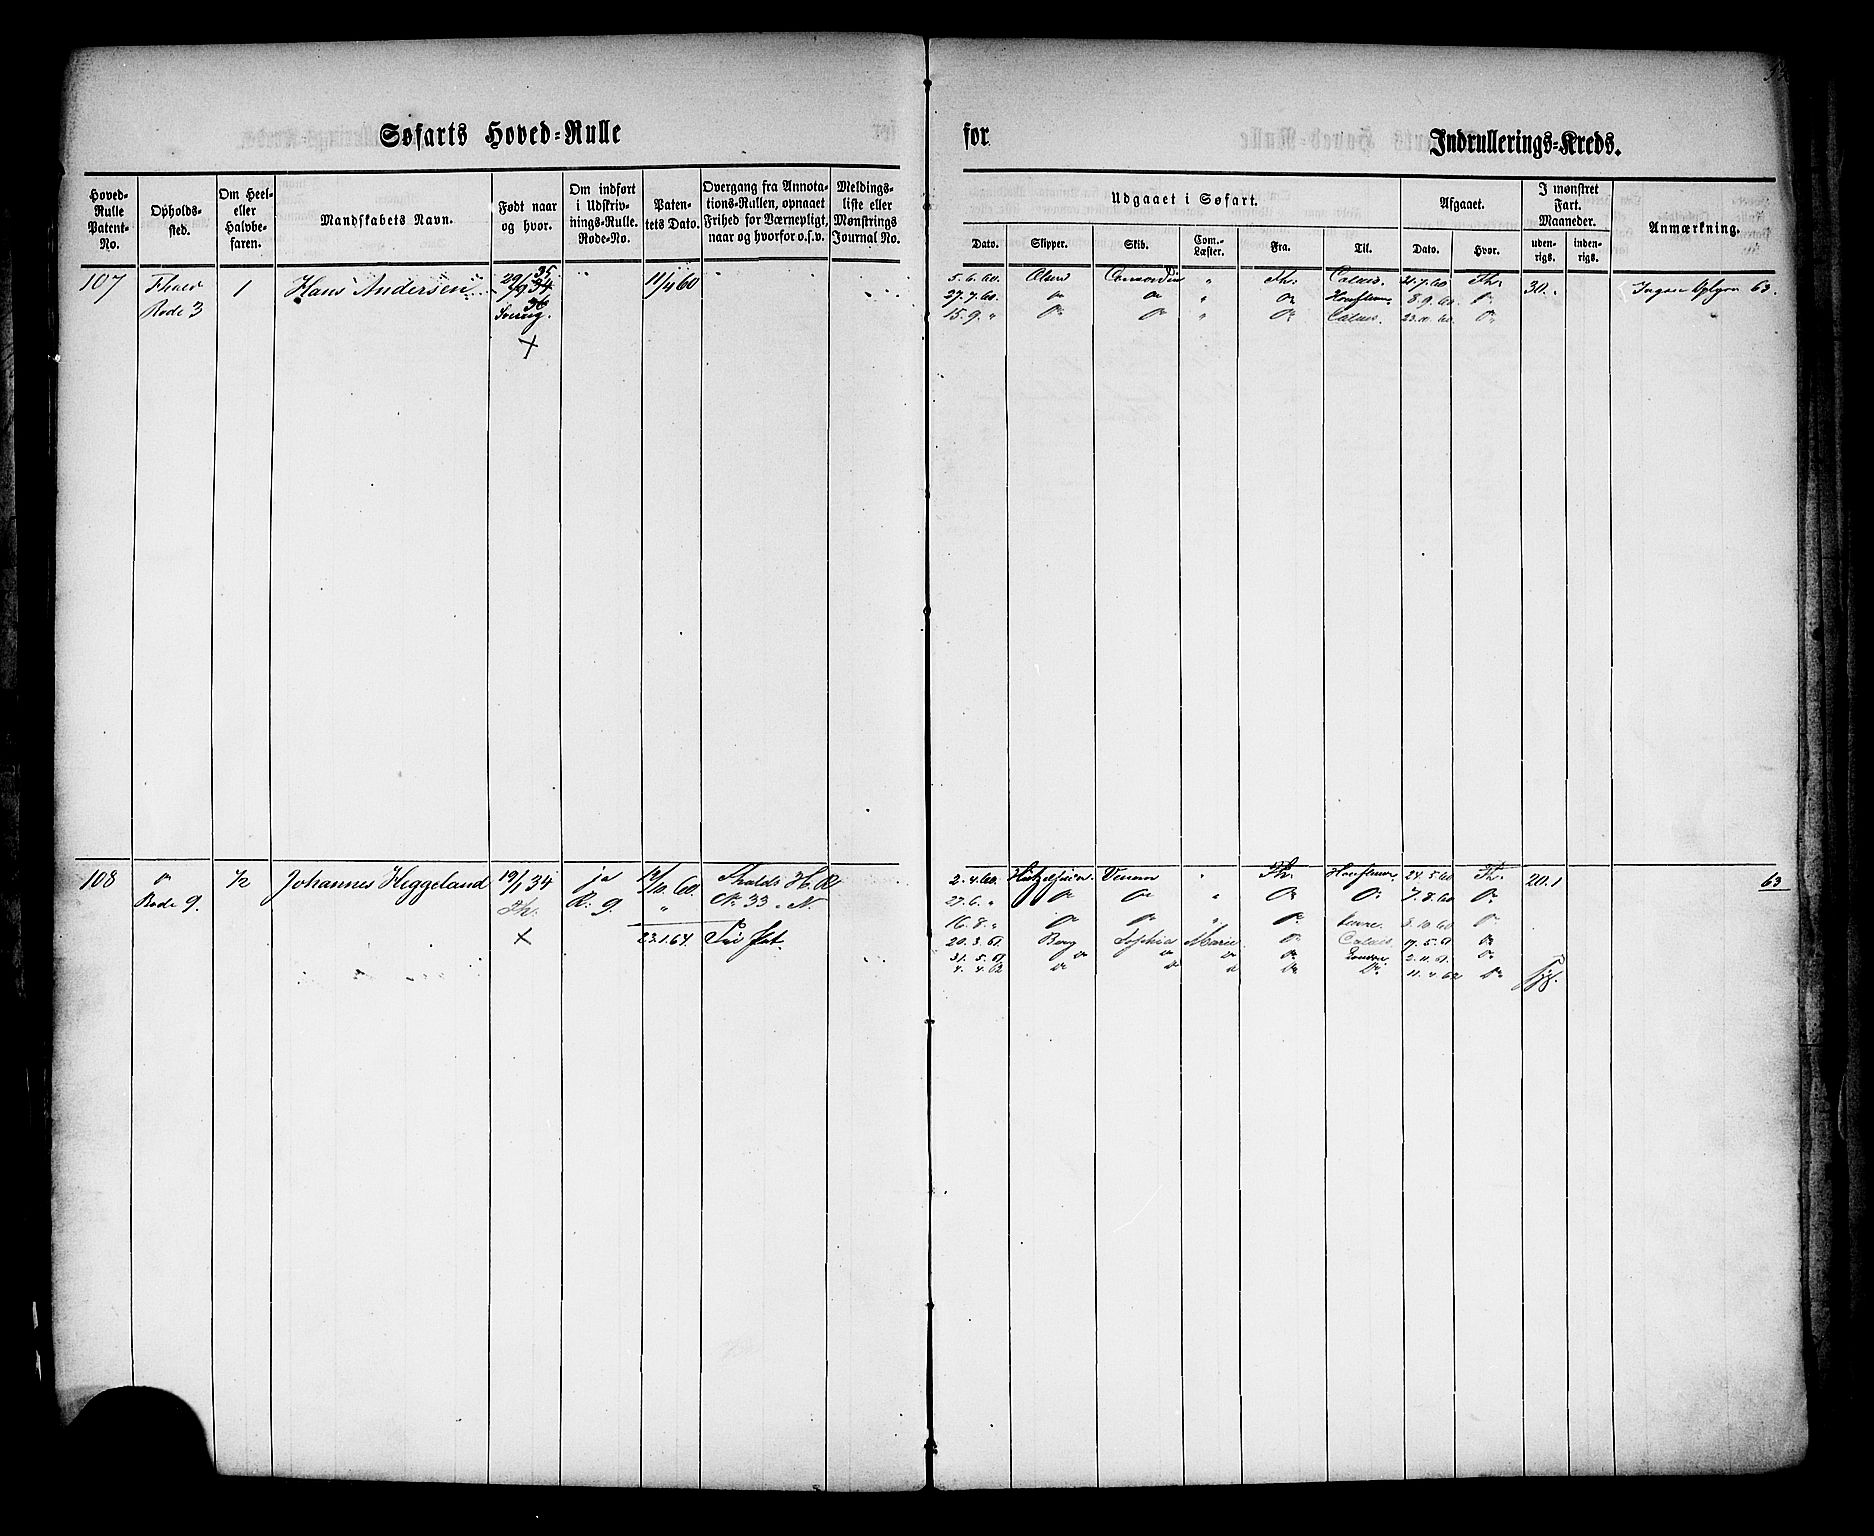 Søfarts Hoved-Rulle
for
Indrullerings-Kreds.
Hoved-Rulle Patent-No.
Opholds-sted.
Om Heel- eller Halvbe-faren.
Mandskabets Navn.
Født naar og hvor.
Om indført i Udskriv-nings-Rulle. Rode-No.
Paten-tets Dato.
Overgang fra Annota-tions-Rullen, opnaaet Frihed for Værnepligt, naar og hvorfor o.s.v.
Meldings-liste eller Mønstrings Journal No.
Udgaaet i Søfart.
Afgaaet.
I mønstret Fart. Maaneder.
Anmærkning.
Dato. Skipper. Skib. Com.-Læster. Fra. Til. Dato. Hvor. uden-rigs. inden-rigs.
107 Rode 3 1 Hans Andersen 29/9 34 35 36 11/4 60
5.6.60. Olsen " Th. Calais. 21.7.60 Th. 30. 63.
27.7.60. Do Do " Do 8.9.60 Do
15.9. " Do Do " Do Calais. 23.11.60. Do
108 Do Rode 9. 1/2 Johannes Heggeland 19/1 34 Th. ja R. 9. 12/10. 60 " Fhalds H.R. No 33. N.
23.1.64
2.4.60. Venum " Th. 24.5.60 Th. 20.1 63
27.6. " Do Do " Do Do 7.8.60 Do
16.8. " Do Do " Do 8.10.60 Do
20.3.61 Berg Sophia Marie Do Calais 17.5.61 Do
31.5.61 Do Do Do Do 2.11.61. Do
4.4.62 Do Do Do Do Do 11.4.62 Do